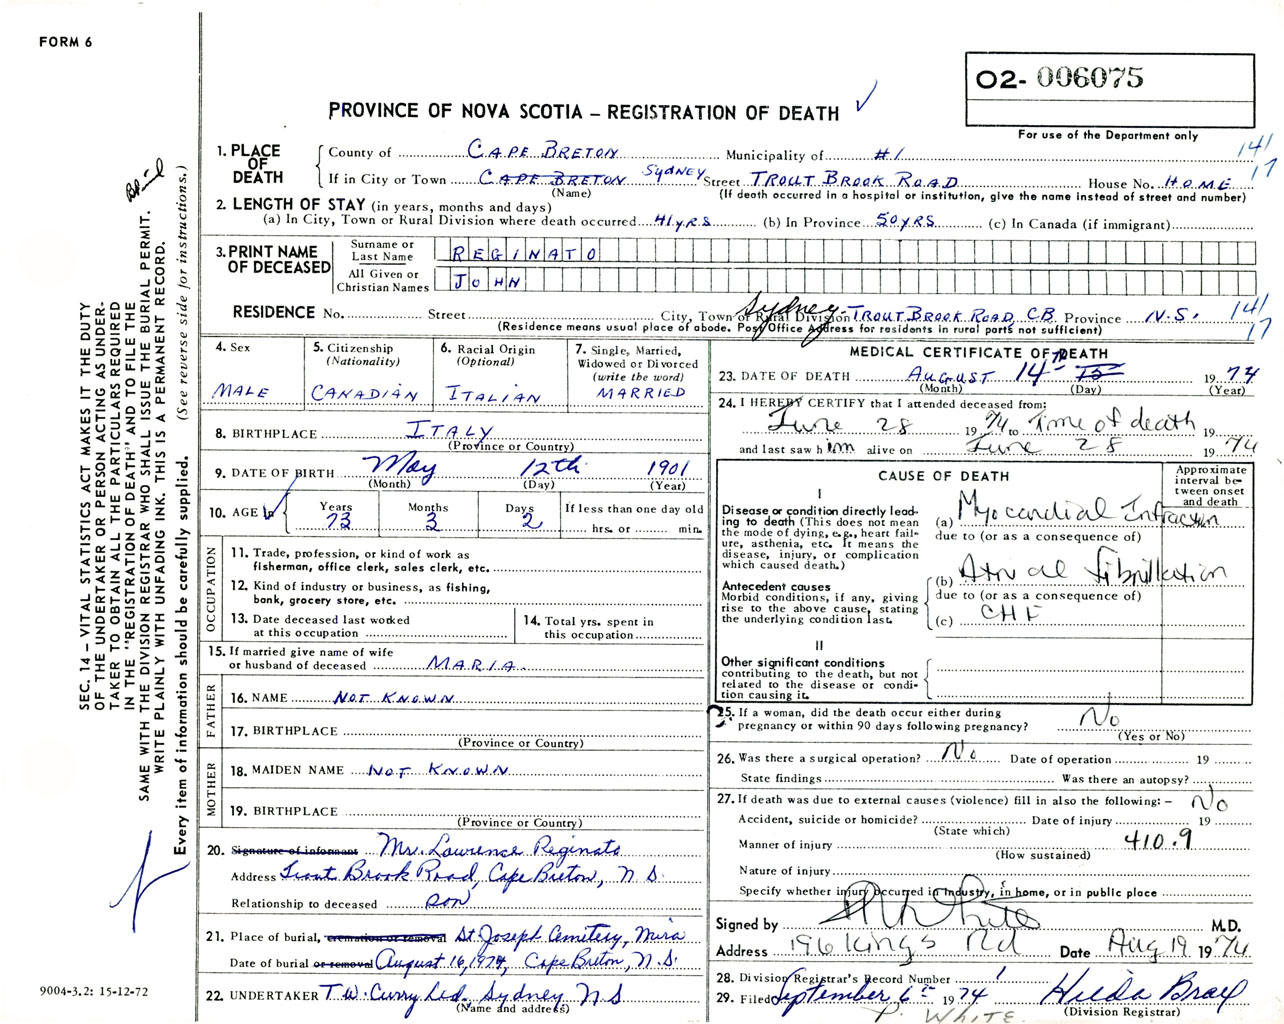 FORM 6
O2- 006075
PROVINCE OF NOVA SCOTIA – REGISTRATION OF DEATH ✓
For use of the Department only
1. PLACE OF DEATH
County of CAPE BRETON Municipality of #1 141
If in City or Town CAPE BRETON SYDNEY Street TROUT BROOK ROAD House No. HOME 17
(Name) (If death occurred in a hospital or institution, give the name instead of street and number)
2. LENGTH OF STAY (in years, months and days)
(a) In City, Town or Rural Division where death occurred 41 YRS (b) In Province 50 YRS (c) In Canada (if immigrant)
3. PRINT NAME OF DECEASED
Surname or Last Name REGINATO
All Given or Christian Names JOHN
RESIDENCE No. Street City, Town or Rural Division Sydney TROUT BROOK ROAD, C.B. Province N.S. 141
(Residence means usual place of abode. Post Office Address for residents in rural parts not sufficient) 17
4. Sex MALE
5. Citizenship (Nationality) CANADIAN
6. Racial Origin (Optional) ITALIAN
7. Single, Married, Widowed or Divorced (write the word) MARRIED
8. BIRTHPLACE ITALY
(Province or Country)
9. DATE OF BIRTH May 12th 1901
(Month) (Day) (Year)
10. AGE In Years 73 Months 3 Days 2 If less than one day old hrs. or min.
OCCUPATION
11. Trade, profession, or kind of work as fisherman, office clerk, sales clerk, etc.
12. Kind of industry or business, as fishing, bank, grocery store, etc.
13. Date deceased last worked at this occupation
14. Total yrs. spent in this occupation
15. If married give name of wife or husband of deceased MARIA
FATHER
16. NAME NOT KNOWN
17. BIRTHPLACE
(Province or Country)
MOTHER
18. MAIDEN NAME NOT KNOWN
19. BIRTHPLACE
(Province or Country)
20. Signature of informant Mr. Lawrence Reginato
Address Trout Brook Road, Cape Breton, N.S.
Relationship to deceased son
21. Place of burial, cremation or removal St. Joseph Cemetery, Mira
Date of burial or removal August 16, 1974, Cape Breton, N.S.
22. UNDERTAKER T.W. Curry Ltd., Sydney, N.S
(Name and address)
MEDICAL CERTIFICATE OF DEATH
23. DATE OF DEATH AUGUST 14TH 15 1974
(Month) (Day) (Year)
24. I HEREBY CERTIFY that I attended deceased from:
June 28 1974 to Time of death 19
and last saw him alive on June 28 1974
CAUSE OF DEATH
Approximate interval between onset and death
I
Disease or condition directly leading to death (This does not mean the mode of dying, e.g., heart failure, asthenia, etc. It means the disease, injury, or complication which caused death.)
(a) Myocardial Infraction
due to (or as a consequence of)
Antecedent causes
Morbid conditions, if any, giving rise to the above cause, stating the underlying condition last.
(b) Atrial Fibrillation
due to (or as a consequence of)
(c) CHF
II
Other significant conditions contributing to the death, but not related to the disease or condition causing it.
25. If a woman, did the death occur either during pregnancy or within 90 days following pregnancy? No
(Yes or No)
26. Was there a surgical operation? No Date of operation 19
State findings Was there an autopsy?
27. If death was due to external causes (violence) fill in also the following: – No
Accident, suicide or homicide? Date of injury 19
(State which)
Manner of injury 410.9
(How sustained)
Nature of injury
Specify whether injury occurred in industry, in home, or in public place
Signed by White M.D.
Address 196 Kings Rd Date Aug 19 1974
28. Division Registrar's Record Number 1
29. Filed September 6th 1974 Hilda Bray
P. WHITE (Division Registrar)
SEC. 14 – VITAL STATISTICS ACT MAKES IT THE DUTY
OF THE UNDERTAKER OR PERSON ACTING AS UNDER-
TAKER TO OBTAIN ALL THE PARTICULARS REQUIRED
IN THE "REGISTRATION OF DEATH" AND TO FILE THE
SAME WITH THE DIVISION REGISTRAR WHO SHALL ISSUE THE BURIAL PERMIT.
WRITE PLAINLY WITH UNFADING INK. THIS IS A PERMANENT RECORD.
Every item of information should be carefully supplied. (See reverse side for instructions.)
9004-3.2: 15-12-72